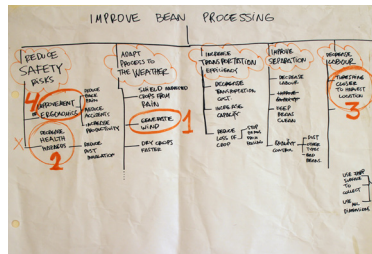 IMPROVE BEAN PROCESSING
REDUCE
SAFETY
RISKS
4
IMPROVEMENT
ERGONOMICS
REDUCE
BACK
PAIN
REDUCE
ACCIDENTS
INCREASE
PRODUCTIVITY
X
DECREASE
HEALTH
HAZARDS
2
REDUCE
DUST
INHALATION
ADAPT
PROCESS TO
THE WEATHER
SHIELD
CROPS FROM
RAIN
GENERATE
WIND
1
DRY CROPS
FASTER
INCREASE
TRANSPORTATION
EFFICIENCY
DECREASE
TRANSPORTATION
COST
INCREASE
CAPACITY
REDUCE
LOSS OF
CROP
STOP
BEANS
FROM
FALLING
IMPROVE
SEPARATION
DECREASE
LABOUR
KEEP
BEANS
CLEAN
QUALITY
CONTROL
DUST
OTHER
TYPES
BAD
BEANS
DECREASE
LABOUR
THRESHING
CLOSER
TO HARVEST
LOCATION
3
USE
SURFACE
TO
COLLECT
USE
DIMENSIONS